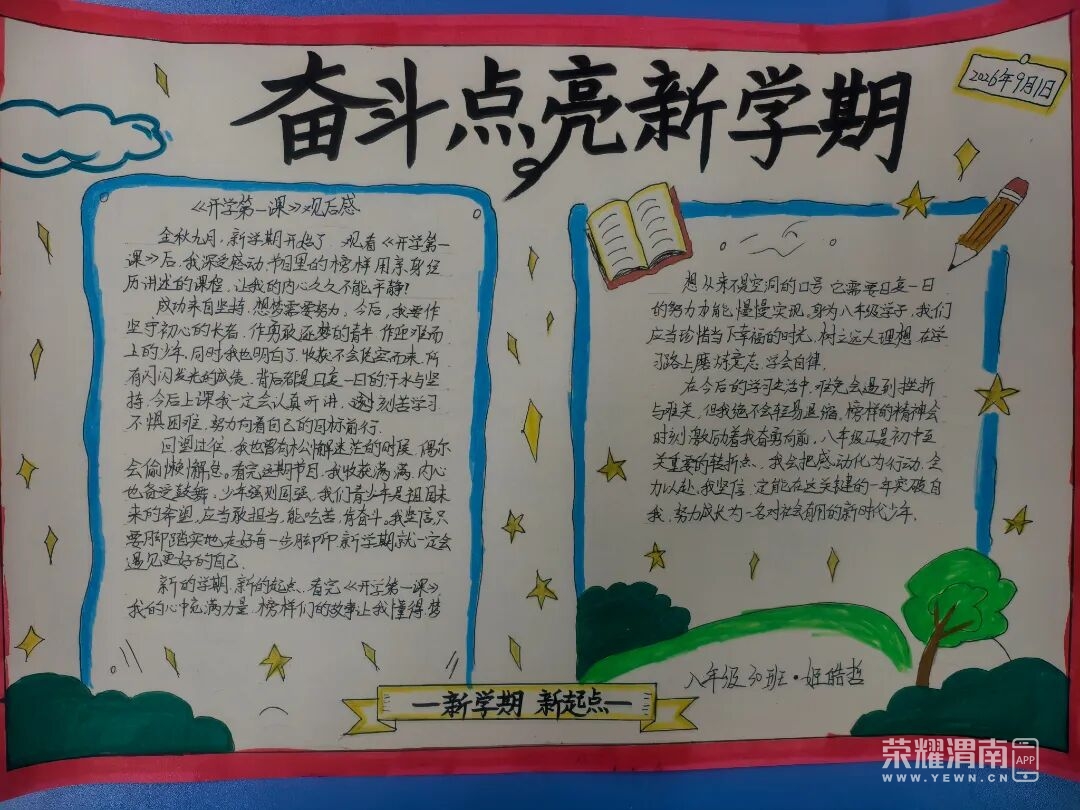 奋斗点亮新学期
2026年9月1日
《开学第一课》观后感
金秋九月，新学期开始了，观看《开学第一
课》后，我深受感动，节目里的榜样用亲身经
历讲述的课程，让我的内心久久不能平静！
成功来自坚持，想梦需要努力。今后，我要作
坚守初心的长者，作勇敢逐梦的青年，作迎难而
上的少年，同时我也明白了，收获不会凭空而来，所
有闪闪发光的成绩，背后都是日复一日的汗水与坚
持，今后上课我一定会认真听讲，刻苦学习
不惧困难，努力向着自己的目标前行.
回望过往，我也曾有松懈迷茫的时候，偶尔
会偷懒懈怠。看完这期节目，我收获满满，内心
也备受鼓舞，少年强则国强，我们青少年是祖国未
来的希望，应当敢担当，能吃苦，肯奋斗。我坚信只
要脚踏实地走好每一步脚印，新学期，就一定会
遇见更好的自己.
新的学期，新的起点，看完《开学第一课》
我的心中充满力量，榜样们的故事让我懂得梦
想从来不是空洞的口号，它需要日复一日
的努力才能慢慢实现。身为八年级学子，我们
应当珍惜当下幸福的时光，树立远大理想，在学
习路上磨炼意志，学会自律.
在今后的学习生活中，难免会遇到挫折
与难关，但我绝不会轻易退缩，榜样的精神会
时刻激励着我奋勇向前，八年级正是初中至
关重要的转折点，我会把感动化为行动，全
力以赴，我坚信，定能在这关键的一年突破自
我，努力成长为一名对社会有用的新时代少年.
八年级30班·姬皓哲
—新学期 新起点—
荣耀渭南APP
WWW.YEWN.CN